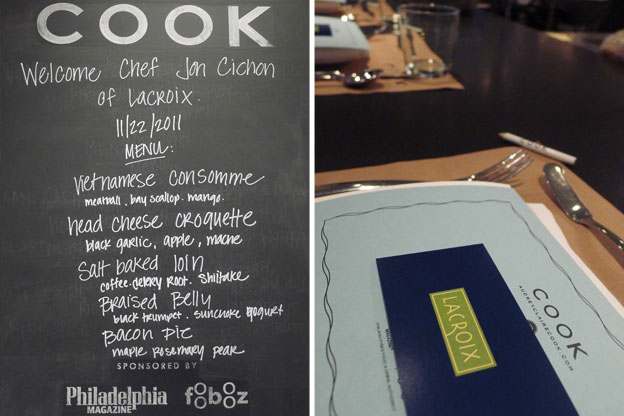 COOK
Welcome Chef Jon Cichon
of Lacroix.
11/22/2011
MENU:
Vietnamese consomme
meatball, bay scallop, mango.
head cheese croquette
black garlic, apple, mache
Salt baked loin
coffee, celery root, shiitake
Braised Belly
black trumpet, sunchoke yogurt
Bacon Pie
maple rosemary pear
SPONSORED BY
Philadelphia
MAGAZINE
foobooz
COOK
AUDREYCLAIRECOOK.COM
LACROIX